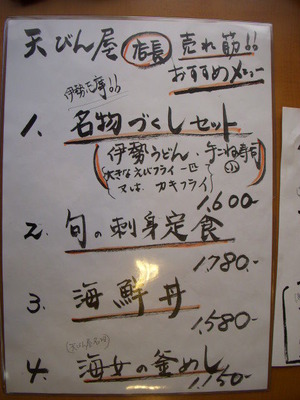 天びん屋 店長 売れ筋!!
おすすめメニュー
1. 名物づくしセット
(伊勢うどん・手こね寿司 小
大きなえびフライ一匹
又は カキフライ)
1,600-
2. 旬の刺身定食
1,780-
3. 海鮮丼
1,580-
4. 海女の釜めし
1,150-